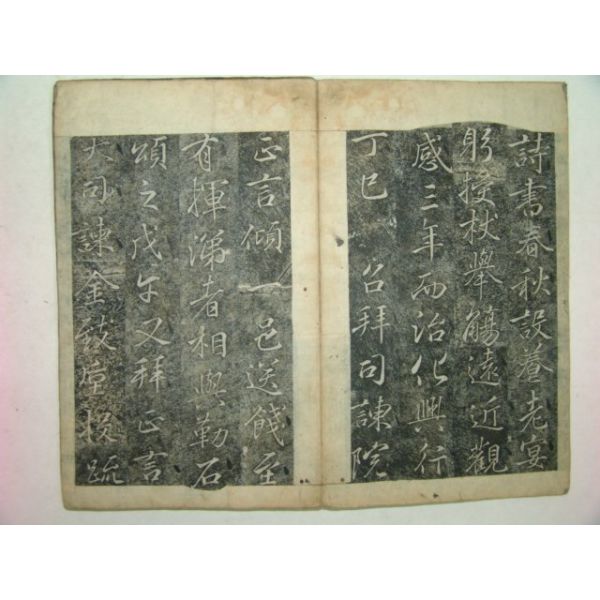 詩書春秋設養老宴
躬授杖舉觴遠近觀
感三年而治化興行
丁巳 召拜司諫院
正言傾一邑送餞至
有揮涕者相與勒石
頌之戊午又拜正言
大司諫金鉉章投疏